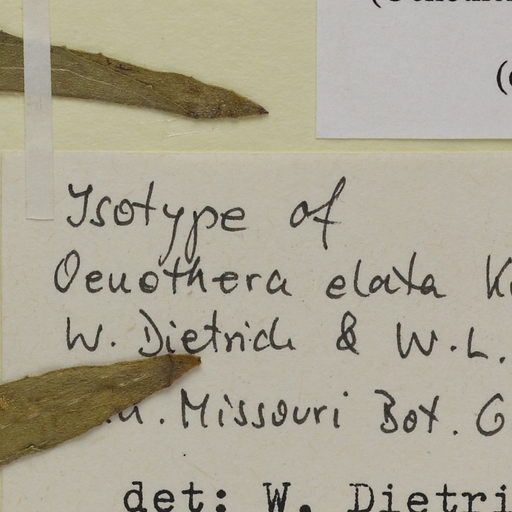 Isotype of
Oenothera elata K
W. Dietrich & W.L.
Missouri Bot. G
det: W. Dietri